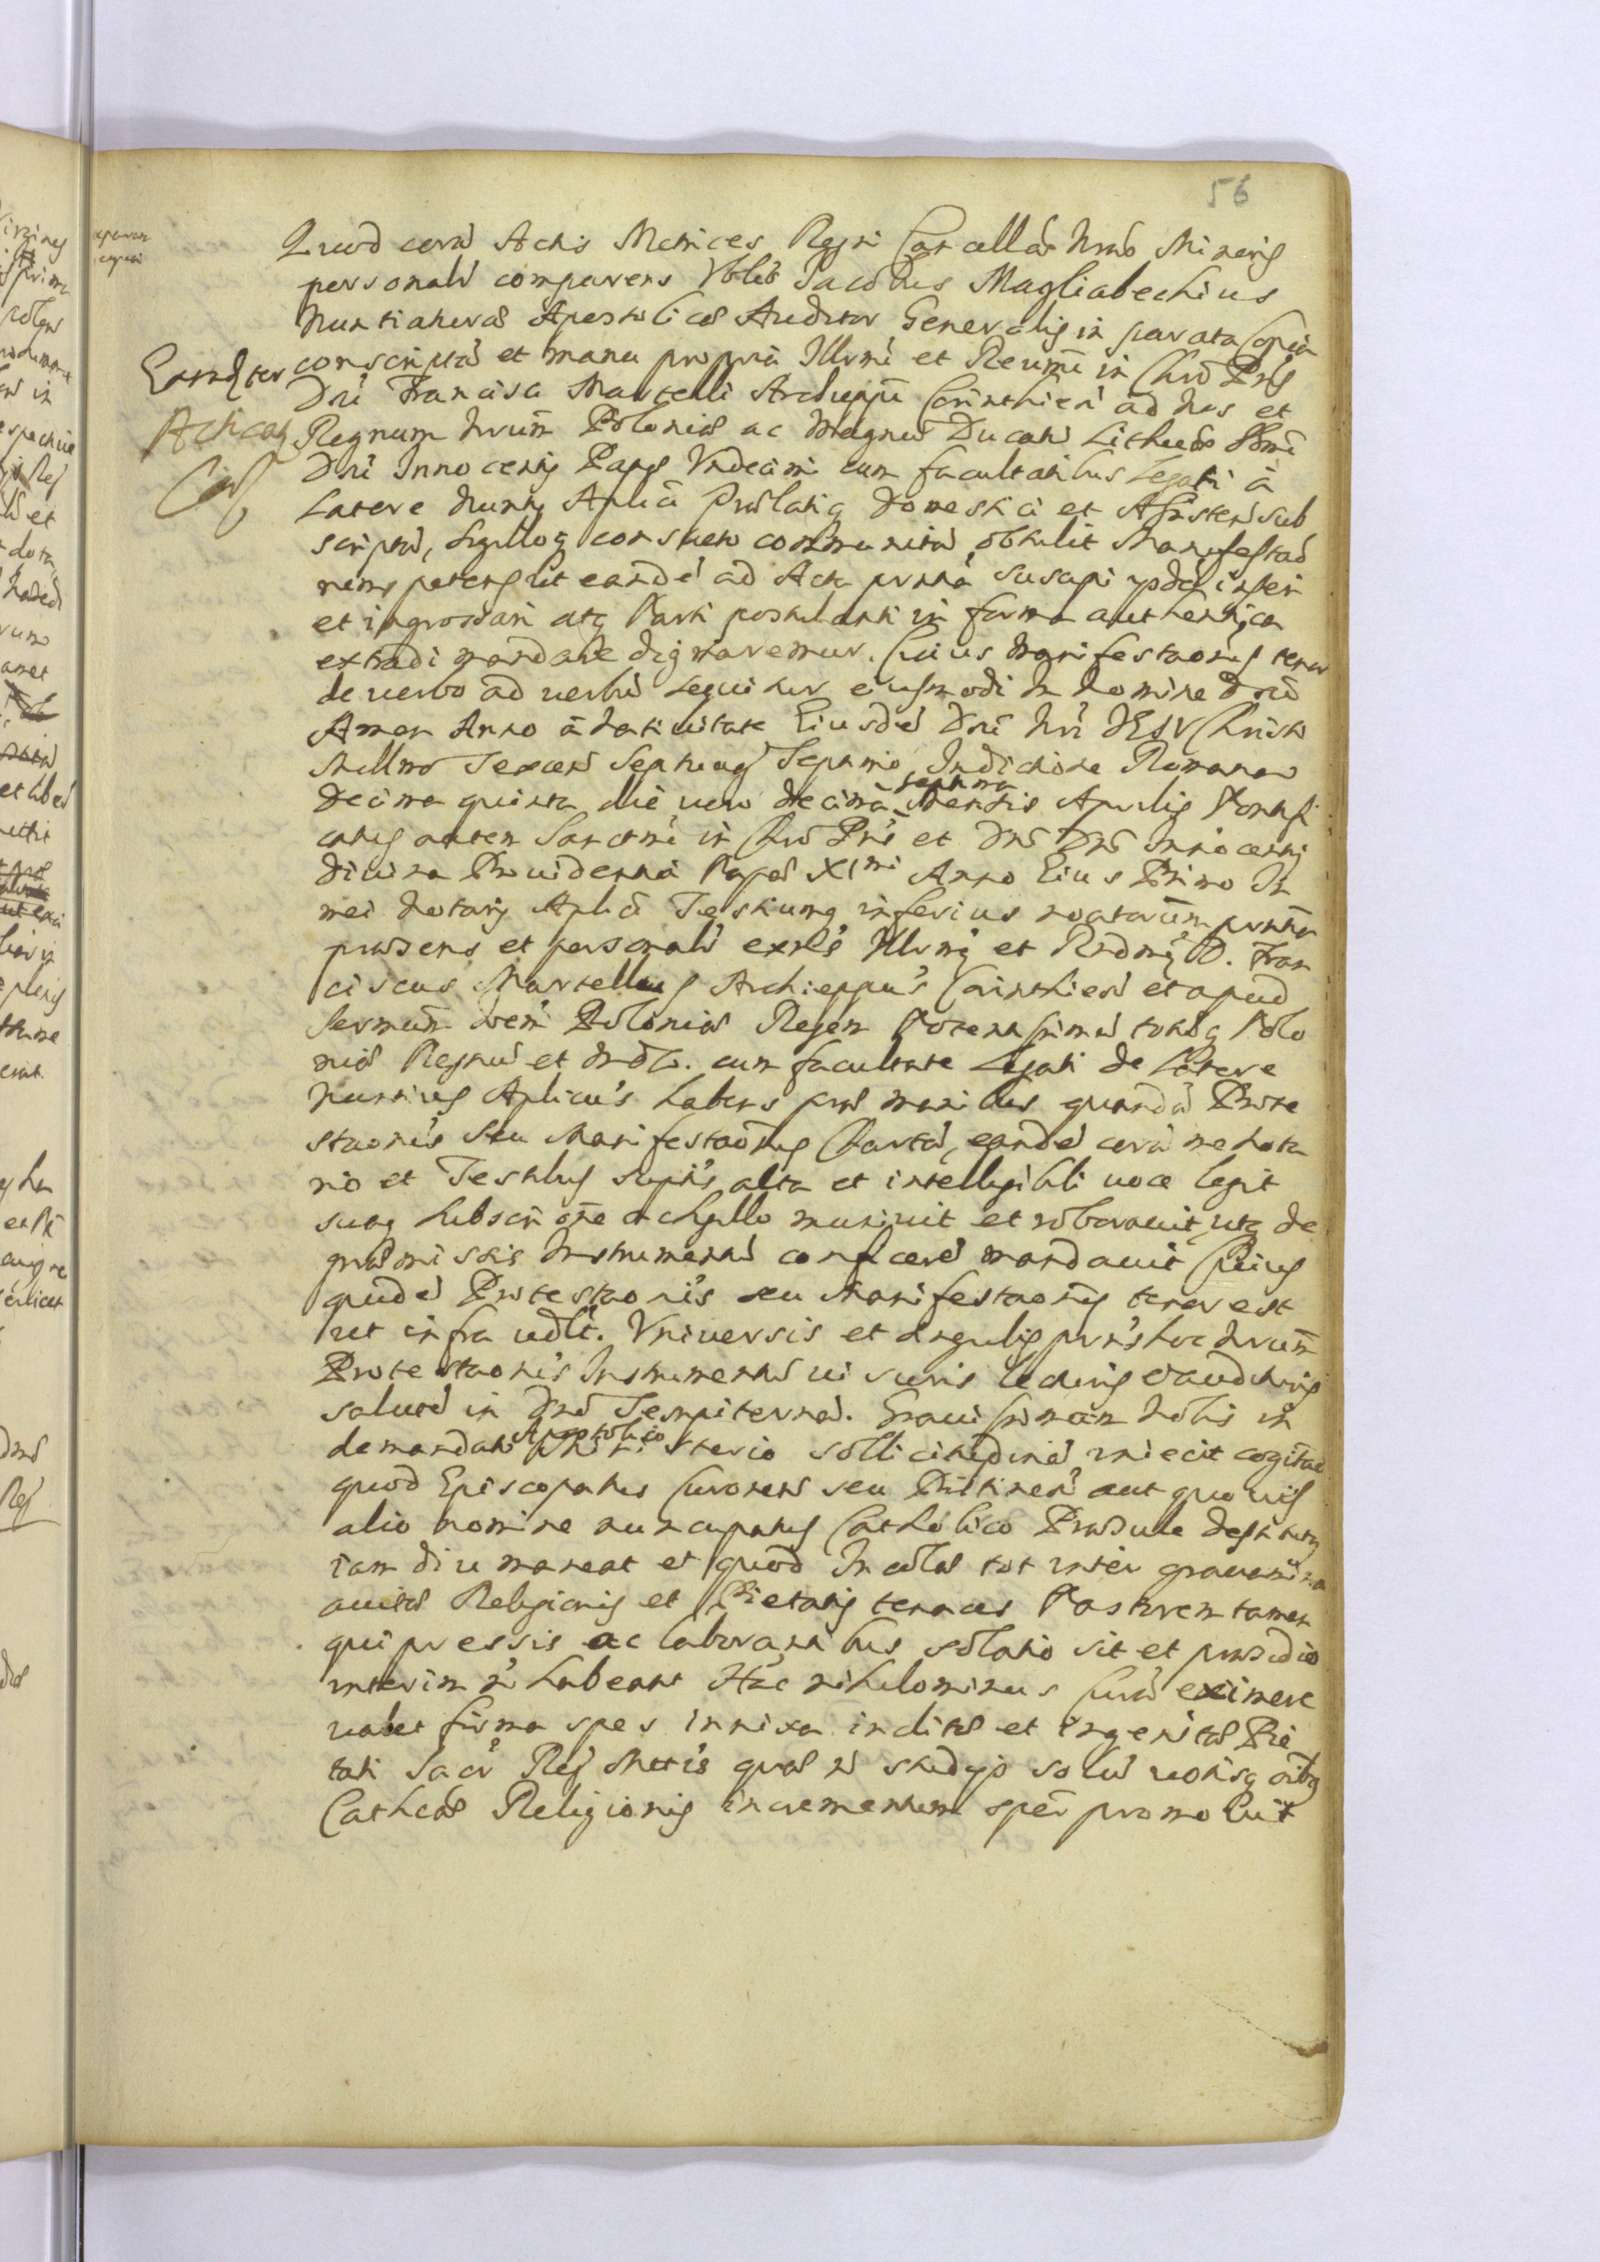 56
Quod corā Actis Metrices Regni Cancellae Nrae Minoris
personalr comparens Nblis Jacobus Magliabechius
Nuntiaturae Apostolicae Auditor Generalis in parata Copia
conscriptā et manu propria Illrmi et Reumi in Chro Pris
Dni Francisci Martelli Archieppi Corinthien ad Nos et
Regnum nrum Poloniae ac Magnum Ducatū Lithuae Ssmi
Dni Innocentij Papae Vndecimi cum facultatibus Legati à
Latere Nuntij Aplici Praelatiq Domestici et Assisten sub
scriptā, sigilloq consueto communitā obtulit Manifestaō
nem petens ut eandē ad Acta prntia suscipi ipsisq inseri
et ingrossari atq Parti postulanti in forma authentica
extradi mandare dignaremur. Cuius Manifestaonis tenor
de uerbo ad uerbū sequitur eiusmodi In Nomine Dni
Amen Anno à Natiuitate Eiusdē Dni Nri IESV Christi
Millmo Sexcen Septuag Septimo Indictione Romana
Decima quinta die uero decimā septima Mensis Aprilis Pontifi
catus autem Sanctmi in Chro Pris et Dni Dni Innocentij
diuina Prouidentia Papae XI mi Anno Eius Primo In
mei Notarij Aplici Testiumq inferius noatorum prntia
praesens et personalr exns Illrmg et Rndmg D. Fran
ciscus Martellus Archieppus Corinthien et apud
Sermum
Poloniae Regem Potentissimū totūq Polo
niae Regnū et MDL. cum facultate Legati de Latere
Nuntius Aplicus habens prae manibus quandā Prote
staonis seu Manifestaonis Chartā, eandē corā me Nota
rio et Testibus suptis alta et intelligibili uoce legit
suaq subscri one ac sigillo muniuit et roborauit, utq de
praemissis Instrumentū conficerē mandauit Cuius
quidē Protestaonis seu Manifestaonis tenor est
ut infra udlt. Vniuersis et singulis prns hoc nrum
Protestaonis Instrumentū uisuris lecturis et audituris
salutē in Dno Sempiternā. Grauissimam Nobis in
demandato Apostolico Ministerio sollicitudinē iniecit cogitao
quod Episcopatus
seu
aut quouis
alio nomine nuncupatus Catholico Praesule destitutus
iam diu maneat et quod Incolae tot inter grauamina
auitae Religionis et Pietatis tenaces Pastorem tamen
qui pressis ac laborantibus solatio sit et praesidio
interim n habeant Hāc nihilominus curā eximere
ualet firma spes innixa inclitae et ingenitae Pie
tati Sacr Reg Mttis quae n studijs solū uotisq oibq
Catheae Religionis incrementum sper promouit